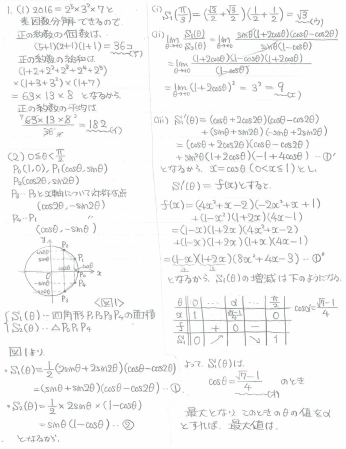 1. (1) 2016 = 2⁵×3²×7 と
素因数分解できるので
正の約数の個数は、
(5+1)(2+1)(1+1) = 36コ
正の約数の総和は
(1+2+2²+2³+2⁴+2⁵)
×(1+3+3²)×(1+7)
= 63×13×8 となるから
正の約数の平均は
63×13×8 / 36 = 182 (イ)
(2) 0≦θ<π/2
P₀(1,0), P₁(cosθ, sinθ)
P₂(cos2θ, sin2θ)
(cos2θ, -sin2θ)
(cosθ, -sinθ)
<図1>
S₁(θ)…四角形P₁P₂P₃P₄の面積
S₂(θ)…△P₀P₁P₄
図1より、
・S₁(θ) = 1/2 (2sinθ+2sin2θ)(cosθ-cos2θ)
= (sinθ+sin2θ)(cosθ-cos2θ) …①
・S₂(θ) = 1/2 × 2sinθ × (1-cosθ)
= sinθ(1-cosθ) …②
となるから、
(i) S₁(π/3) = (√3/2 + √3/2)(1/2 + 1/2) = √3 (ウ)
(ii) lim θ→+0 S₁(θ)/S₂(θ) = lim θ→+0
= lim θ→+0 (1+2cosθ)²(1-cosθ) / (1-cosθ)
= lim θ→+0 (1+2cosθ)² = 3² = 9 (エ)
(iii) S₁'(θ) = (cosθ+2cos2θ)(cosθ-cos2θ)
+(sinθ+sin2θ)(-sinθ+2sin2θ)
= (cosθ+2cos2θ)(cosθ-cos2θ)
+sin²θ(1+2cosθ)(-1+4cosθ) …①'
となるから、x=cosθ (0<x≦1)とし、
S₁'(θ) = f(x)とすると、
f(x) = (4x²+x-2)(-2x²+x+1)
+(1-x²)(1+2x)(4x-1)
= (1-x)(1+2x)(4x²+x-2)
+(1-x)(1+2x)(1+x)(4x-1)
= (1-x)(1+2x)(8x²+4x-3) …①''
となるから、S₁(θ)の増減は下のようになる
θ 0 … α … π/2
x 1 √7-1/4 0
f + 0 -
S₁ 0 ↗ ↘ 1
cosα = √7-1/4
よって、S₁(θ)は、
cosθ = √7-1/4 のとき
最大となり、このときのθの値をα
とすれば、最大値は、